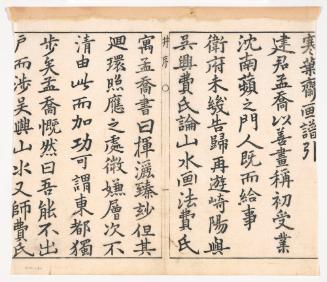 寒葉齋画譜引
建君孟喬以善畫稱初受業
沈南蘋之門人既而給事
衛府未幾告歸再遊崎陽與
吳興費氏論山水画法費氏
寓孟喬書曰揮灑臻玅但其
迴環照應之處微嫌層次不
清由此而加功可謂東都獨
步矣孟喬慨然曰吾能不出
戸而涉吳興山水又師費氏